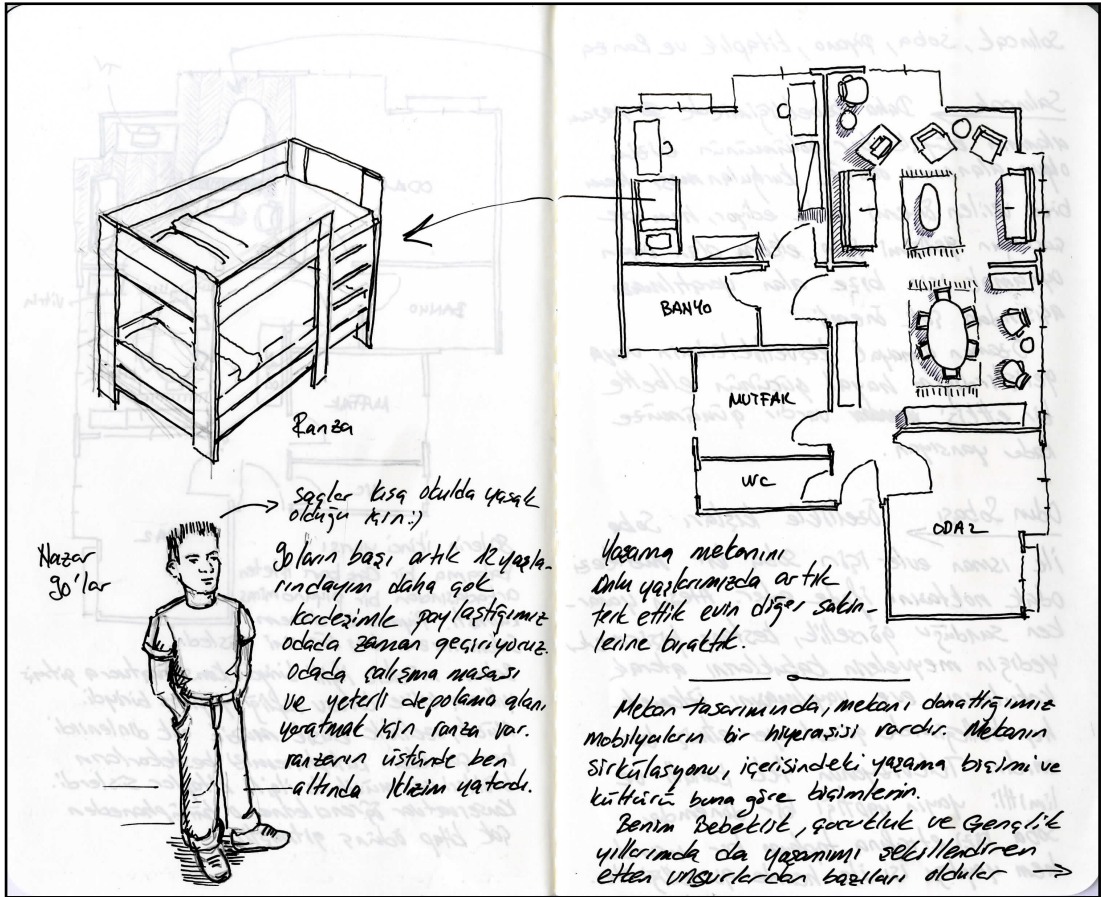 Ranza
saçlar kısa okulda yasak
olduğu için:)
Nazar
90'lar
90ların başı artık 12 yaşla-
rındayım daha çok
kardeşimle paylaştığımız
odada zaman geçiriyoruz.
Odada çalışma masası
ve yeterli depolama alanı
yaratmak için ranza var.
ranzanın üstünde ben
altında ikizim yatardı.
BANYO
MUTFAK
WC
ODA2
Yaşama mekanını
Onlu yaşlarımızda artık
terk ettik evin diğer sakin-
lerine bıraktık.
Mekan tasarımında, mekanı donattığımız
mobilyaların bir hiyerarşisi vardır. Mekanın
sirkülasyonu, içerisindeki yaşama biçimi ve
kültürü buna göre biçimlenir.
Benim Bebeklik, çocukluk ve Gençlik
yıllarımda da yaşamımı şekillendiren
etken unsurlardan bazıları oldular →